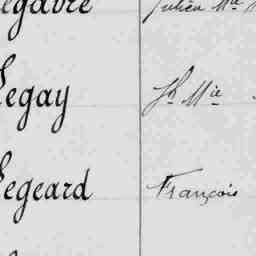 Legavre Julien Mie
Legay Jh Mie
Legeard François